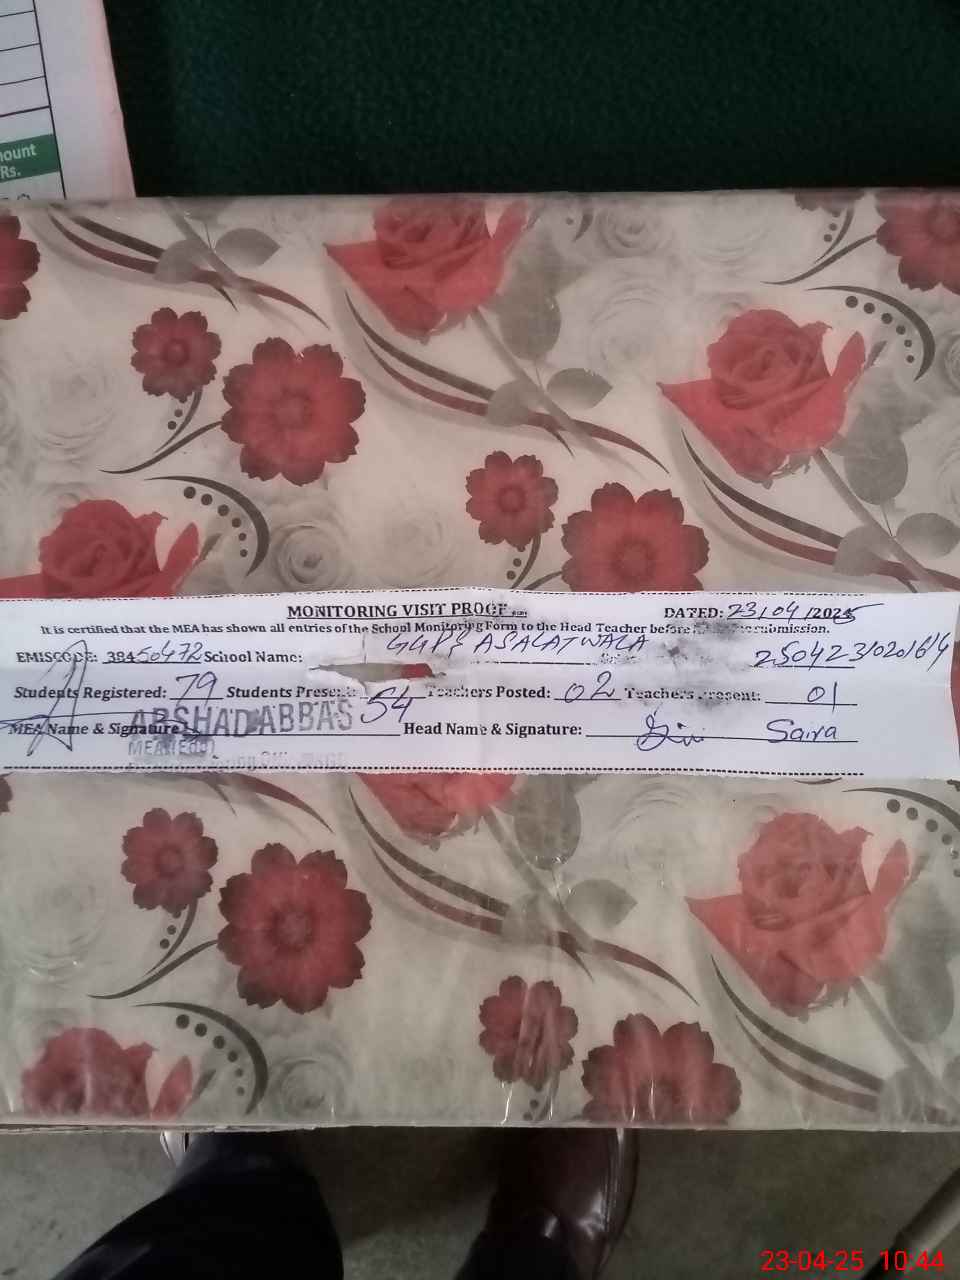 ount
Rs.
MONITORING VISIT PROOF
DATED: 23/04/2025
It is certified that the MEA has shown all entries of the School Monitoring Form to the Head Teacher before submission.
EMISCODE: 38450472 School Name: GGPS ASALATWALA
Students Registered: 79 Students Present: 54 Teachers Posted: 02 Teachers Present: 01
MEA Name & Signature: ARSHAD ABBAS Head Name & Signature: Saira
MEA (Edu)
23-04-25 10:44